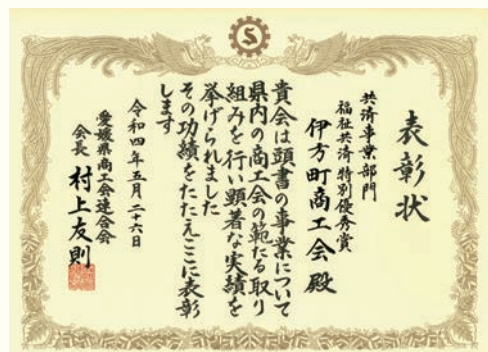 表彰状
共済事業部門
福祉共済特別優秀賞
伊方町商工会殿
貴会は頭書の事業について
県内の商工会の範たる取り
組みを行い顕著な実績を
挙げられました
その功績をたたえここに表彰
します
令和四年五月二十六日
愛媛県商工会連合会
会長 村上友則